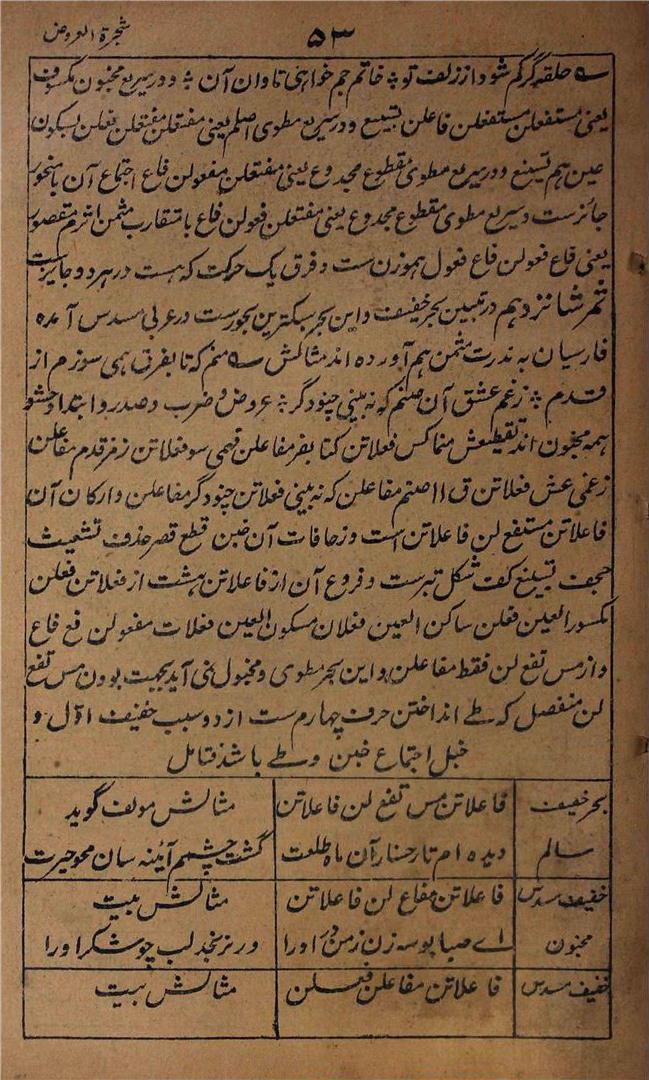 شجرة العروض
۵۳
سه حلقه گر گم شود از زلف تو ۞ خاتم جم خواهی تاوان آن ۞ و در سریع مخبون مکسوف
یعنی مستفعلن مستفعلن فاعلن تسبیغ و در سریع مطوی اصلم یعنی مفتعلن مفتعلن فعلن بسکون
عین هم تسبیغ و در سریع مطوی مقطوع مجدوع یعنی مفتعلن مفعولن فاع اجتماع آن با منحور
جائزست و سریع مطوی مقطوع مجدوع یعنی مفتعلن فعولن فاع با متقارب مثمن اثرم مقصور
یعنی فاع فعولن فاع فعول هموزن ست و فرق یک حرکت که هست در هر دو جایزست
ثمر شانزدهم در تبیین بحر خفیف و این بحر سبکترین بحورست در عربی مسدس آمده
فارسیان به ندرت مثمن هم آورده اند مثالش سه منم که تا بفرق همی سوزم از
قدم ۞ زغم عشق آن صنم که نه بینی چنو دگر ۞ عروض و ضرب و صدر و ابتدا و حشو
همه مخبون اند تقطیعش منماکس فعلاتن کتا بفر مفاعلن قهمی سو فعلاتن زمز قدم مفاعلن
زغمی عش فعلاتن ق اا صنم مفاعلن که نه بینی فعلاتن چنود گر مفاعلن و ارکان آن
فاعلاتن مستفع لن فاعلاتن است و زحافات آن خبن قطع قصر حذف تشعیث
جحف تسبیغ کف شکل تبرست و فروع آن از فاعلاتن هشت از فعلاتن فعلن
مکسور العین فعلن ساکن العین فعلان مسکون العین فعلات مفعولن فع فاع
و از مس تفع لن فقط مفاعلن و این بحر مطوی و مخبول نمی آید بجهت بودن مس تفع
لن منفصل که طے انداختن حرف چهارم ست از دو سبب خفیف اول و
خبل اجتماع خبن و طے باشد فتامل
بحر خفیف | فاعلاتن مس تفع لن فاعلاتن | مثالش مولف گوید
سالم | دیده ام تا رخسار آن ماه طلعت | گشت چشمم آئینه سان محو حیرت
خفیف مسدس | فاعلاتن مفاع لن فاعلاتن | مثالش بیت
مخبون | اے صبا بوسه زن زمن در اورا | ورنرنجد لب چو شکر اورا
خفیف مسدس | فاعلاتن مفاعلن فعلن | مثالش بیت